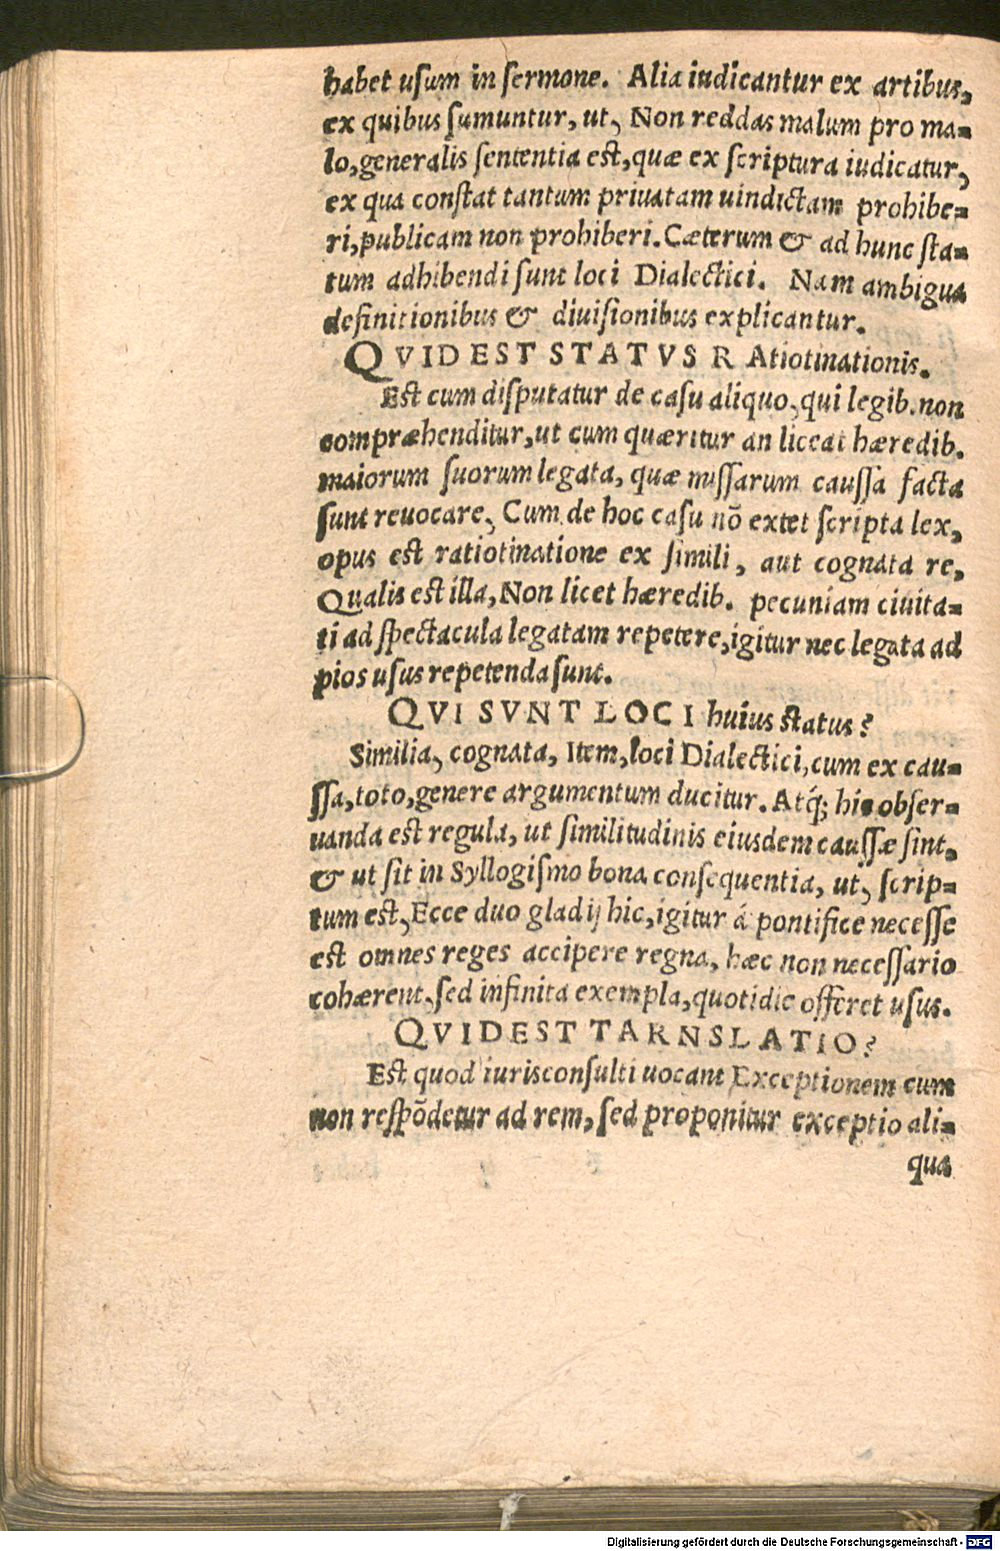 habet usum in sermone. Alia iudicantur ex artibus,
ex quibus sumuntur, ut, Non reddas malum pro ma-
lo, generalis sententia est, quæ ex scriptura iudicatur,
ex qua constat tantum priuatam uindictam prohibe-
ri, publicam non prohiberi. Cæterum & ad hunc sta-
tum adhibendi sunt loci Dialectici. Nam ambigua
definitionibus & diuisionibus explicantur.
QVID EST STATVS R Atiotinationis.
Est cum disputatur de casu aliquo, qui legib. non
compræhenditur, ut cum quæritur an liceat hæredib.
maiorum suorum legata, quæ missarum caussa facta
sunt reuocare, Cum de hoc casu nõ extet scripta lex,
opus est ratiotinatione ex simili, aut cognata re,
Qualis est illa, Non licet hæredib. pecuniam ciuita-
ti ad spectacula legatam repetere, igitur nec legata ad
pios usus repetenda sunt.
QVI SVNT LOCI huius status?
Similia, cognata, Item, loci Dialectici, cum ex cau-
ssa, toto, genere argumentum ducitur. Atq́; hic obser-
uanda est regula, ut similitudinis eiusdem caussæ sint,
& ut sit in Syllogismo bona consequentia, ut, scrip-
tum est, Ecce duo gladij hic, igitur á pontifice necesse
est omnes reges accipere regna, hæc non necessario
cohærent, sed infinita exempla, quotidie offeret usus.
QVID EST TARNSLATIO?
Est quod iurisconsulti uocant Exceptionem cum
non respõdetur ad rem, sed proponitur exceptio ali-
qua
Digitalisierung gefördert durch die Deutsche Forschungsgemeinschaft - DFG